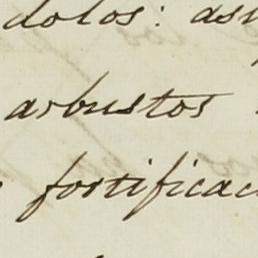 dolos: asi
arbustos
fortificac